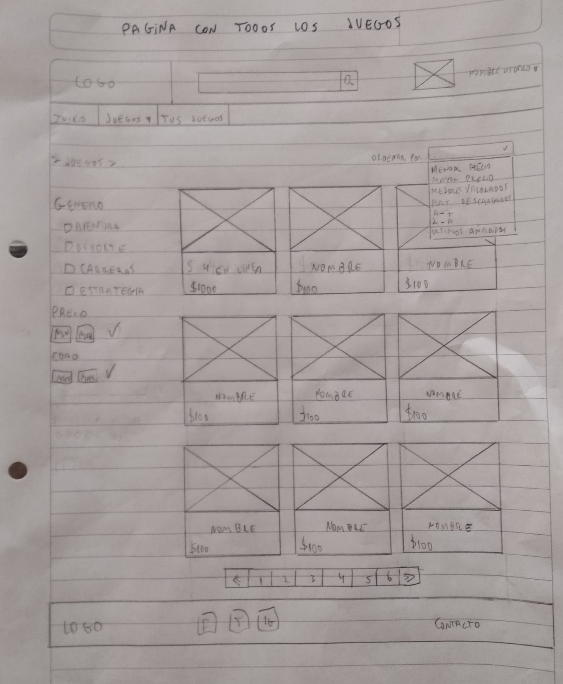 PAGINA CON TODOS LOS JUEGOS
LOGO
NOMBRE USUARIO
INICIO JUEGOS TUS JUEGOS
> JUEGOS >
ORDENAR POR
MENOR PRECIO
MAYOR PRECIO
MEJORES VALORADOS
MAS DESCARGADOS
A-Z
Z-A
ULTIMOS AÑADIDOS
GENERO
AVENTURA
DEPORTE
CARRERAS
ESTRATEGIA
PRECIO
MIN MAX
EDAD
MIN MAX
4 EN LINEA NOMBRE NOMBRE
$1000 $100 $100
NOMBRE NOMBRE NOMBRE
$100 $100 $100
NOMBRE NOMBRE NOMBRE
$100 $100 $100
< 1 2 3 4 5 6 >
LOGO F T IG CONTACTO